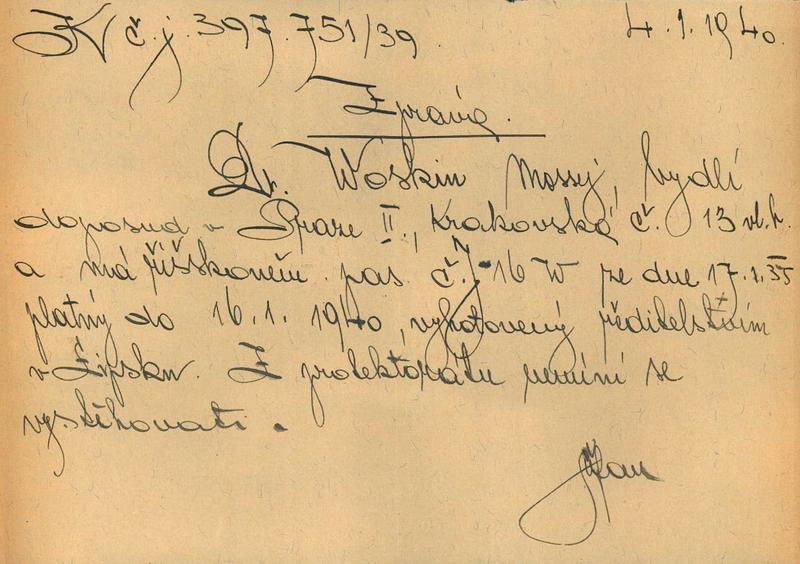 K č.j. 397.751/39.
4.1.1940.
Zpráva.
Dr. Woskin Mossij, bydlí
doposud v Praze II., Krakovská č. 13 vl. h.
a má říšskoněm. pas č. 16 W ze dne 17.1.35
platný do 16.1.1940, vyhotovený ředitelstvím
v Lipsku. Z protektorátu nemíní se
vystěhovati.